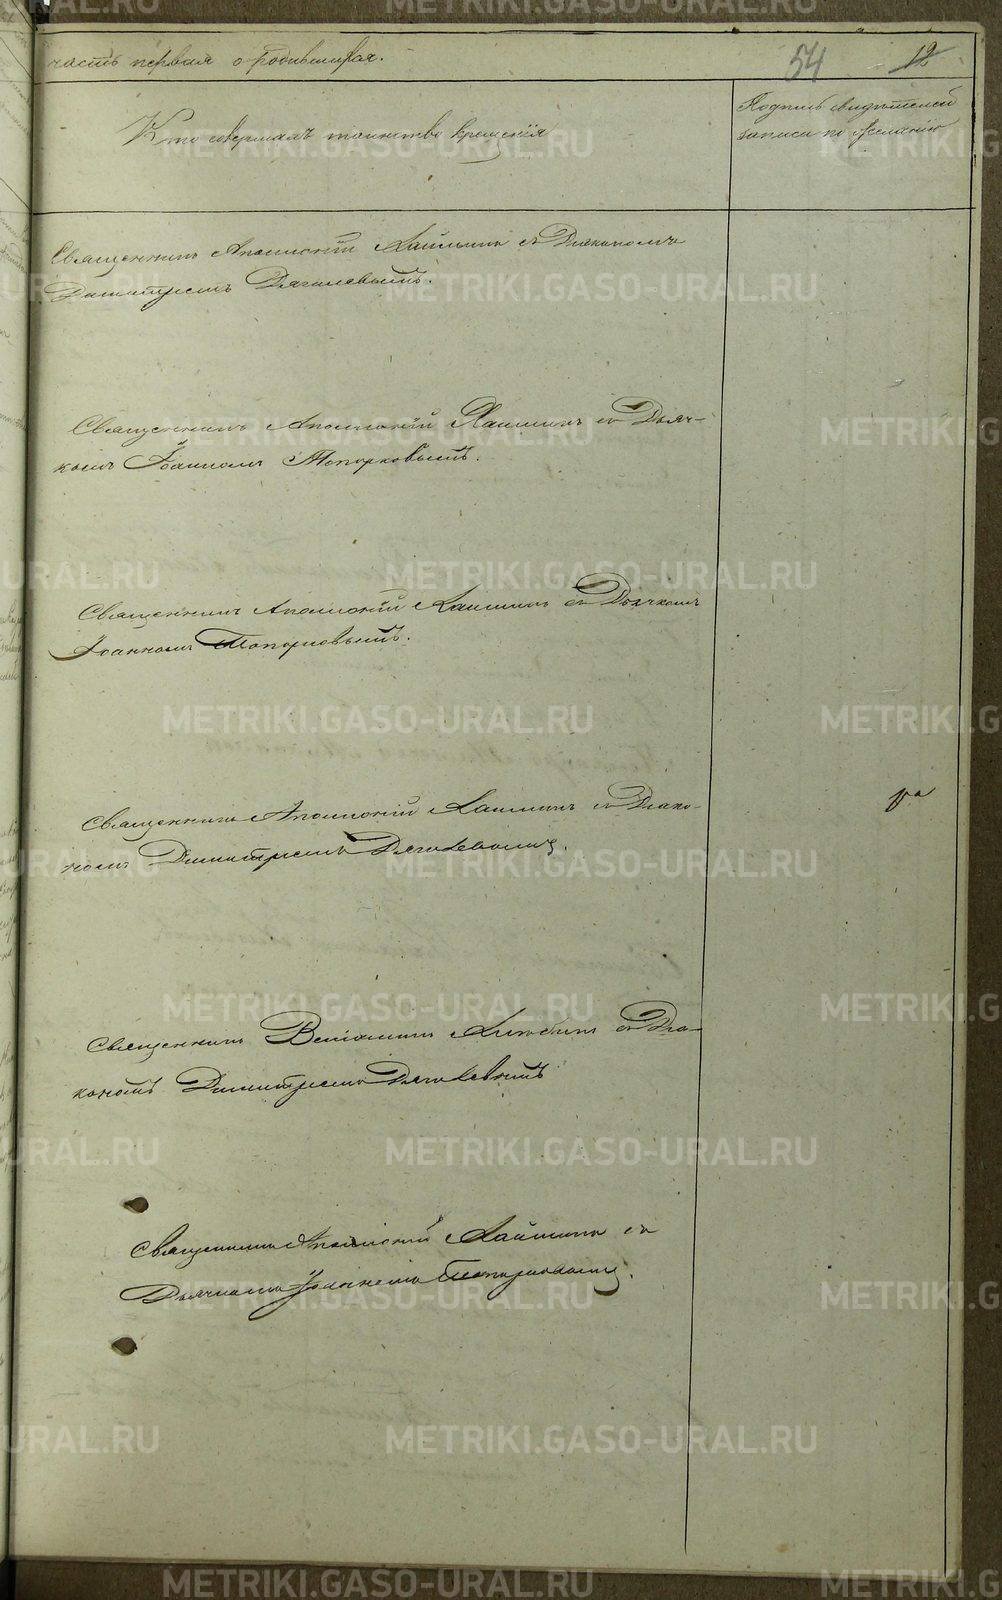 часть первая о родившихся.
54 12
Кто совершалъ таинство крещенія
Подпись свидѣтелей
записи по желанію
Священникъ Аполлоній Лаишинъ съ Діакономъ
Димитріемъ Дягилевымъ.
Священникъ Аполлоній Лаишинъ съ Дьяч-
комъ Іоанномъ Топорковымъ.
Священникъ Аполлоній Лаишинъ съ Дьячкомъ
Іоанномъ Топорковымъ.
Священникъ Аполлоній Лаишинъ съ Діако-
номъ Димитріемъ Дягилевымъ.
Священникъ Веніаминъ съ Діа-
кономъ Димитріемъ Дягилевымъ
Священникъ Аполлоній Лаишинъ съ
Дьячкомъ Іоанномъ Топорковымъ.
METRIKI.GASO-URAL.RU